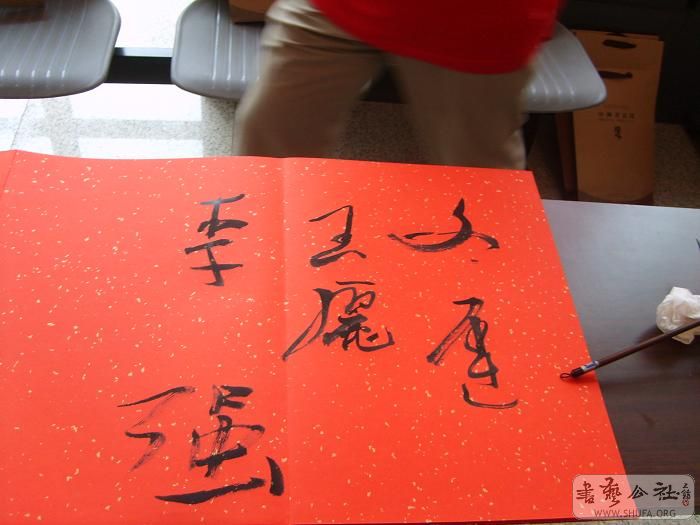 文
王麗
李強
書藝公社
WWW.SHUFA.ORG